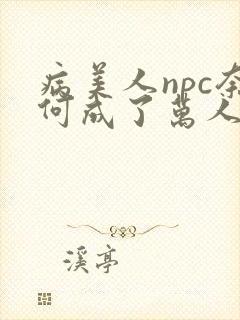 病美人npc奈
何成了萬人
溪亭